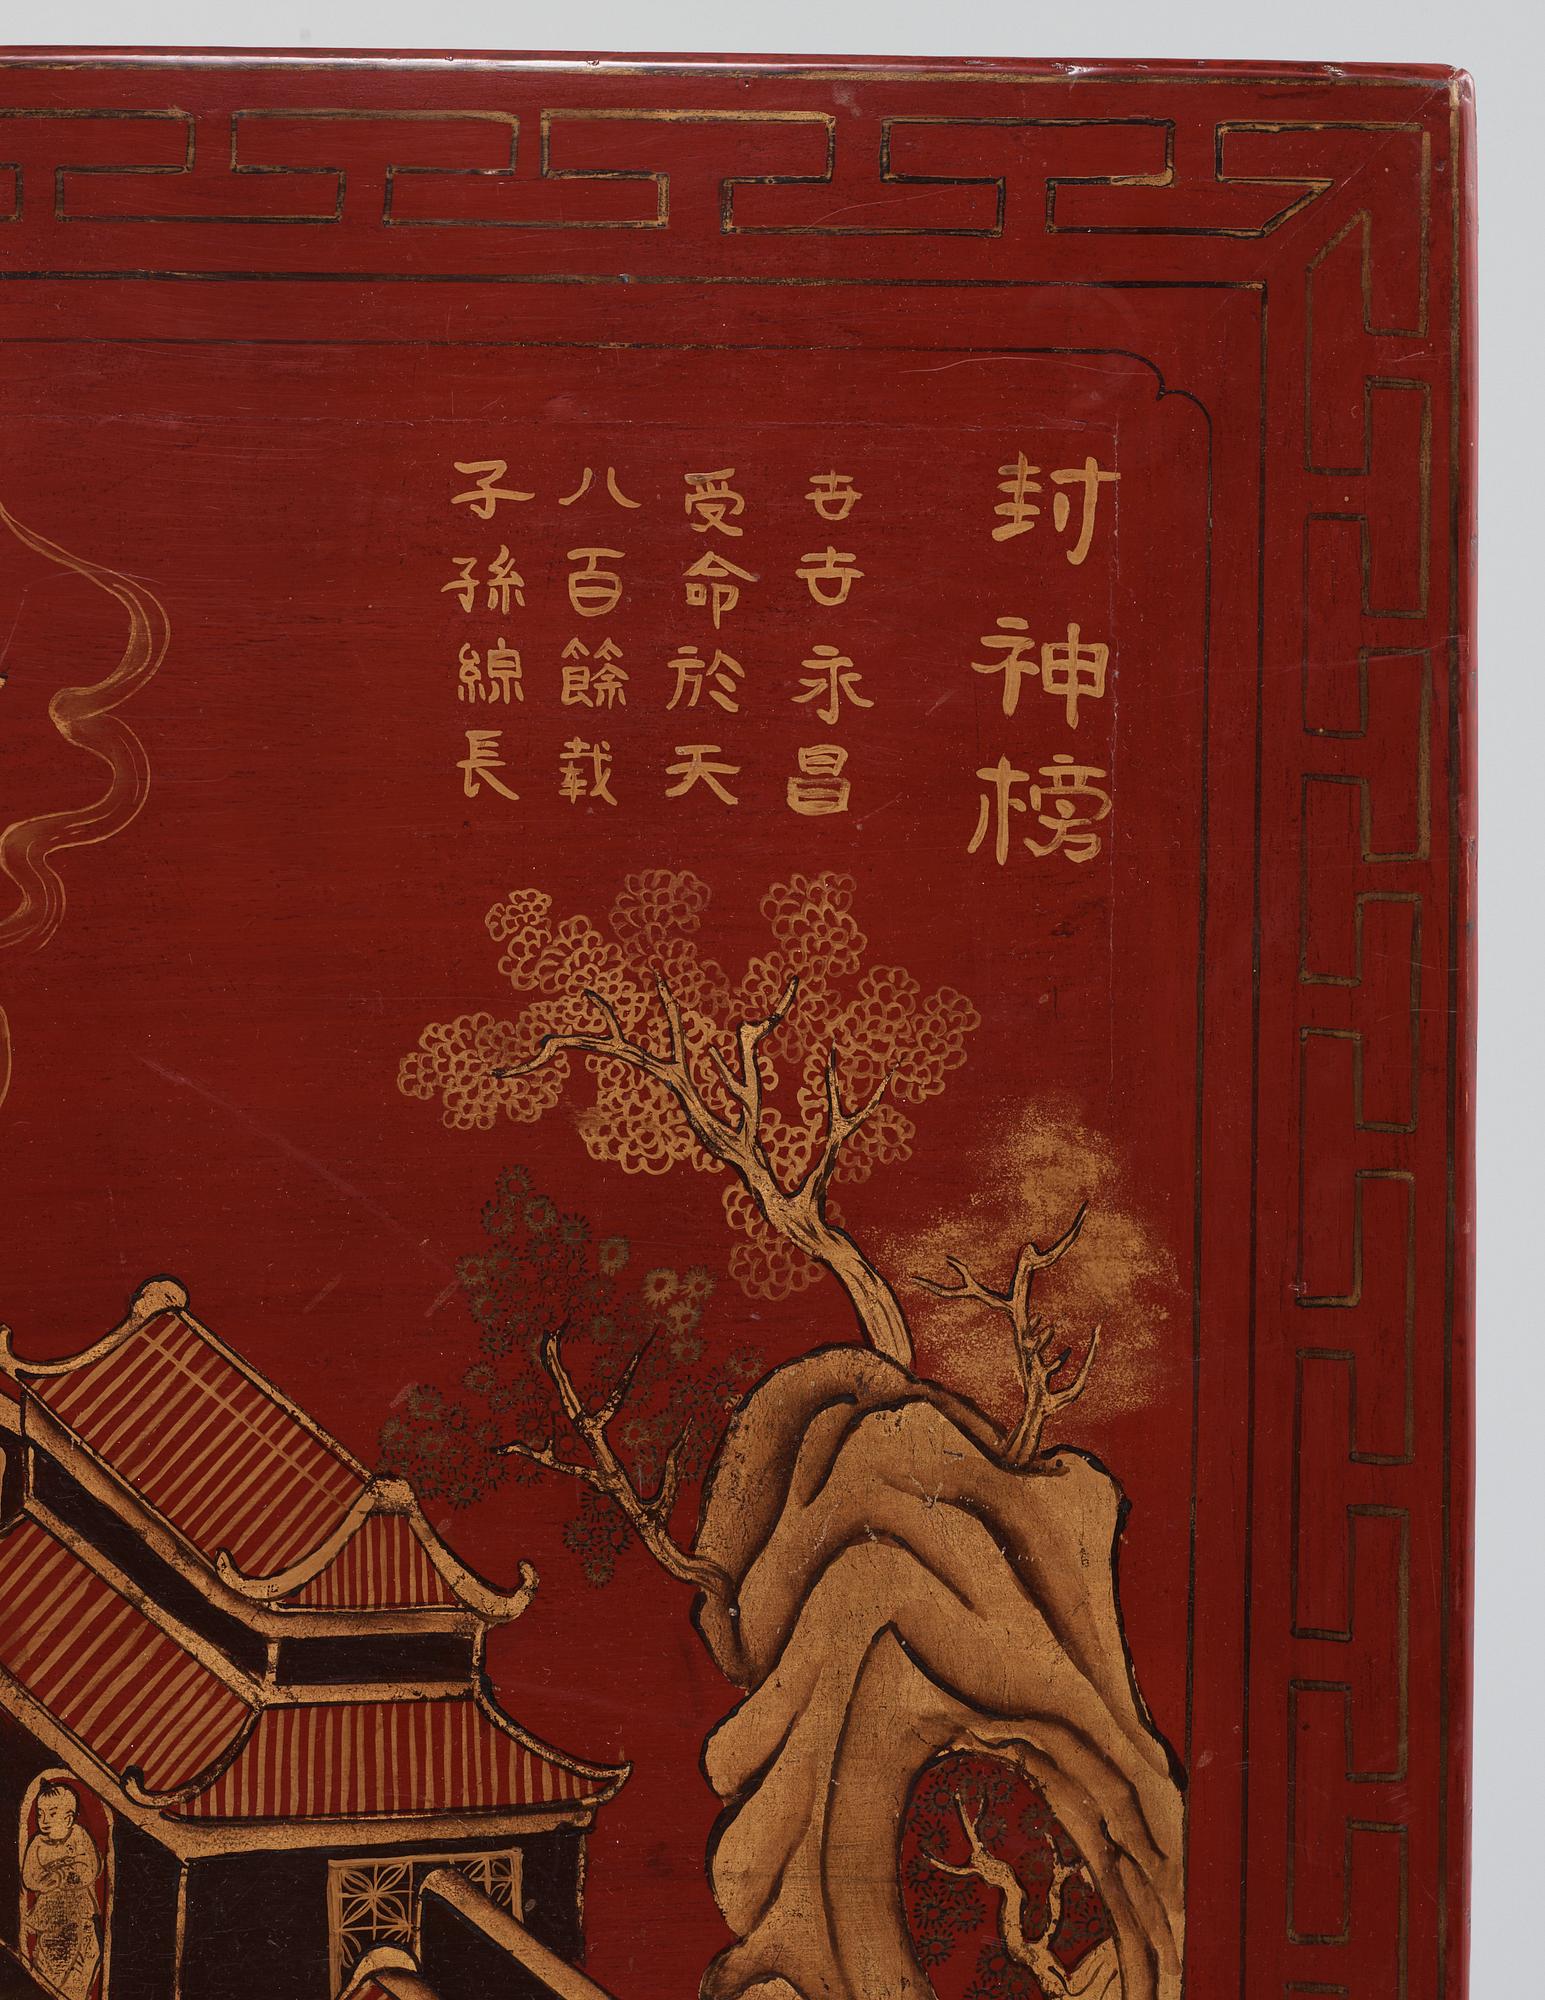 封神榜
永昌
受命於天
八百餘載
子孫線長